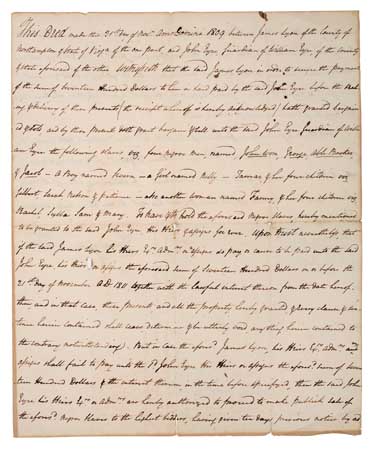 This Deed made this 21st day of Novr. Anno Domini 1809 between James Lyon of the County of
Northampton & State of Virga. of the one part, and John Eyre, Guardian of William Eyre, of the County
& State aforesaid of the other Witnesseth that the said James Lyon in order to secure the payment
of the sum of Seventeen Hundred Dollars to him in hand paid by the said John Eyre before the
& delivery of these presents the receipt whereof is hereby acknowledged hath granted bargain
ed & sold and by these presents doth grant bargain & sell unto the said John Eyre Guardian of
am Eyre the following slaves, viz, four negroe men, named George, Abel
& Jacob - A Boy named - a Girl named Nelly - & her four children viz
Gilbert, Sarah & patience - also another woman named Fanny, & her four children viz
Rachel, Lydia Sam & Mary. To have & to hold the aforesaid Negroe slaves hereby mentioned
to be granted to the said John Eyre His Heirs & assigns for ever. Upon trust nevertheless that
if the said James Lyon his Heirs Exrs. Admrs. or assigns do pay or cause to be paid unto the said
John Eyre his Heirs or assigns the aforesaid sum of Seventeen Hundred Dollars on or before the
21st day of November A.D. 1811 together with the lawful interest thereon from the date hereof
then, and in that case these presents and all the property hereby granted & every clause &
herein contained shall cease determine & be utterly void any thing herein contained to
the contrary notwithstanding. But in case the aforesd. James Lyon, his Heirs Exrs. Admrs. and
assigns shall fail to pay unto the sd. John Eyre His Heirs or assigns the aforesd. sum of Seven
teen Hundred Dollars & the interest thereon in the time before specifyed, then the said John
Eyre his Heirs Exrs. or Admrs. are hereby authorized to proceed to make publick sale of
the aforesd. Negroe Slaves to the highest bidder, having given ten days previous notice by ad